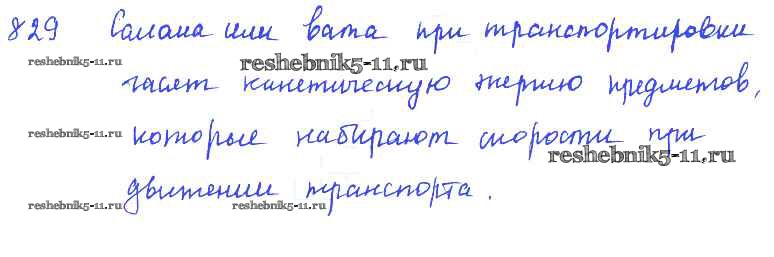 829 Солома или вата при транспортировки
reshebnik5-11.ru reshebnik5-11.ru
гасят кинетическую энергию предметов,
reshebnik5-11.ru
которые набирают скорости при
reshebnik5-11.ru
движении транспорта.
reshebnik5-11.ru reshebnik5-11.ru